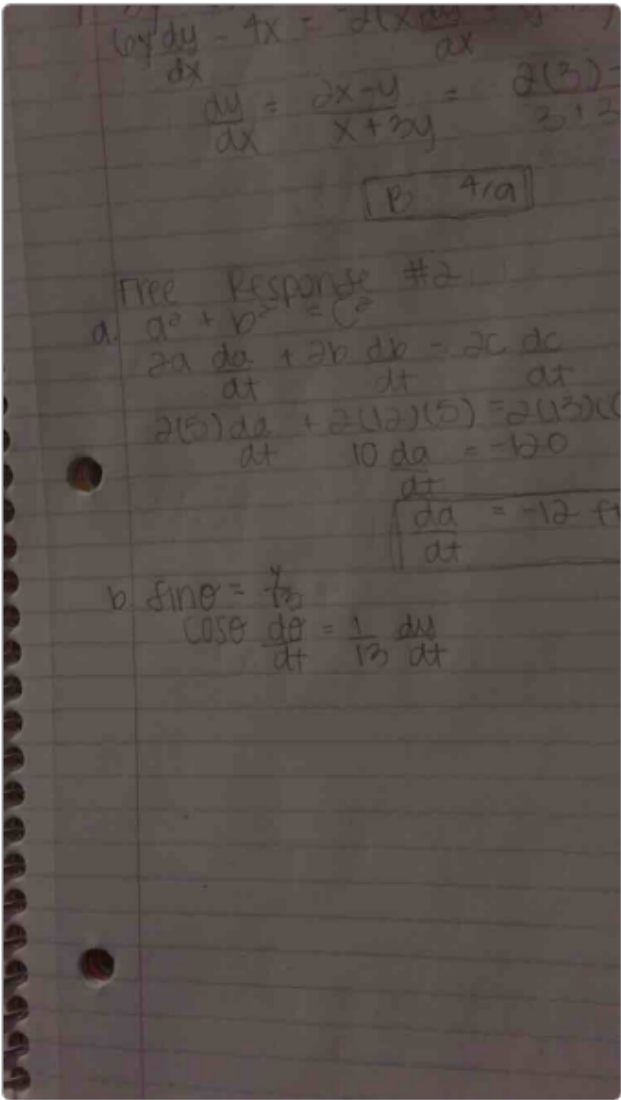 6y dy/dx - 4x = 2(x dy/dx
dy/dx = 2x-y/x+3y = 2(3)-
B 4/9
Free Response #2
a. a² + b² = c²
2a da/dt + 2b db/dt = 2c dc/dt
2(5) da/dt + 2(12)(5) = 2(13)(
10 da/dt = -120
da/dt = -12 ft
b. sinθ = y/13
cosθ dθ/dt = 1/13 dy/dt